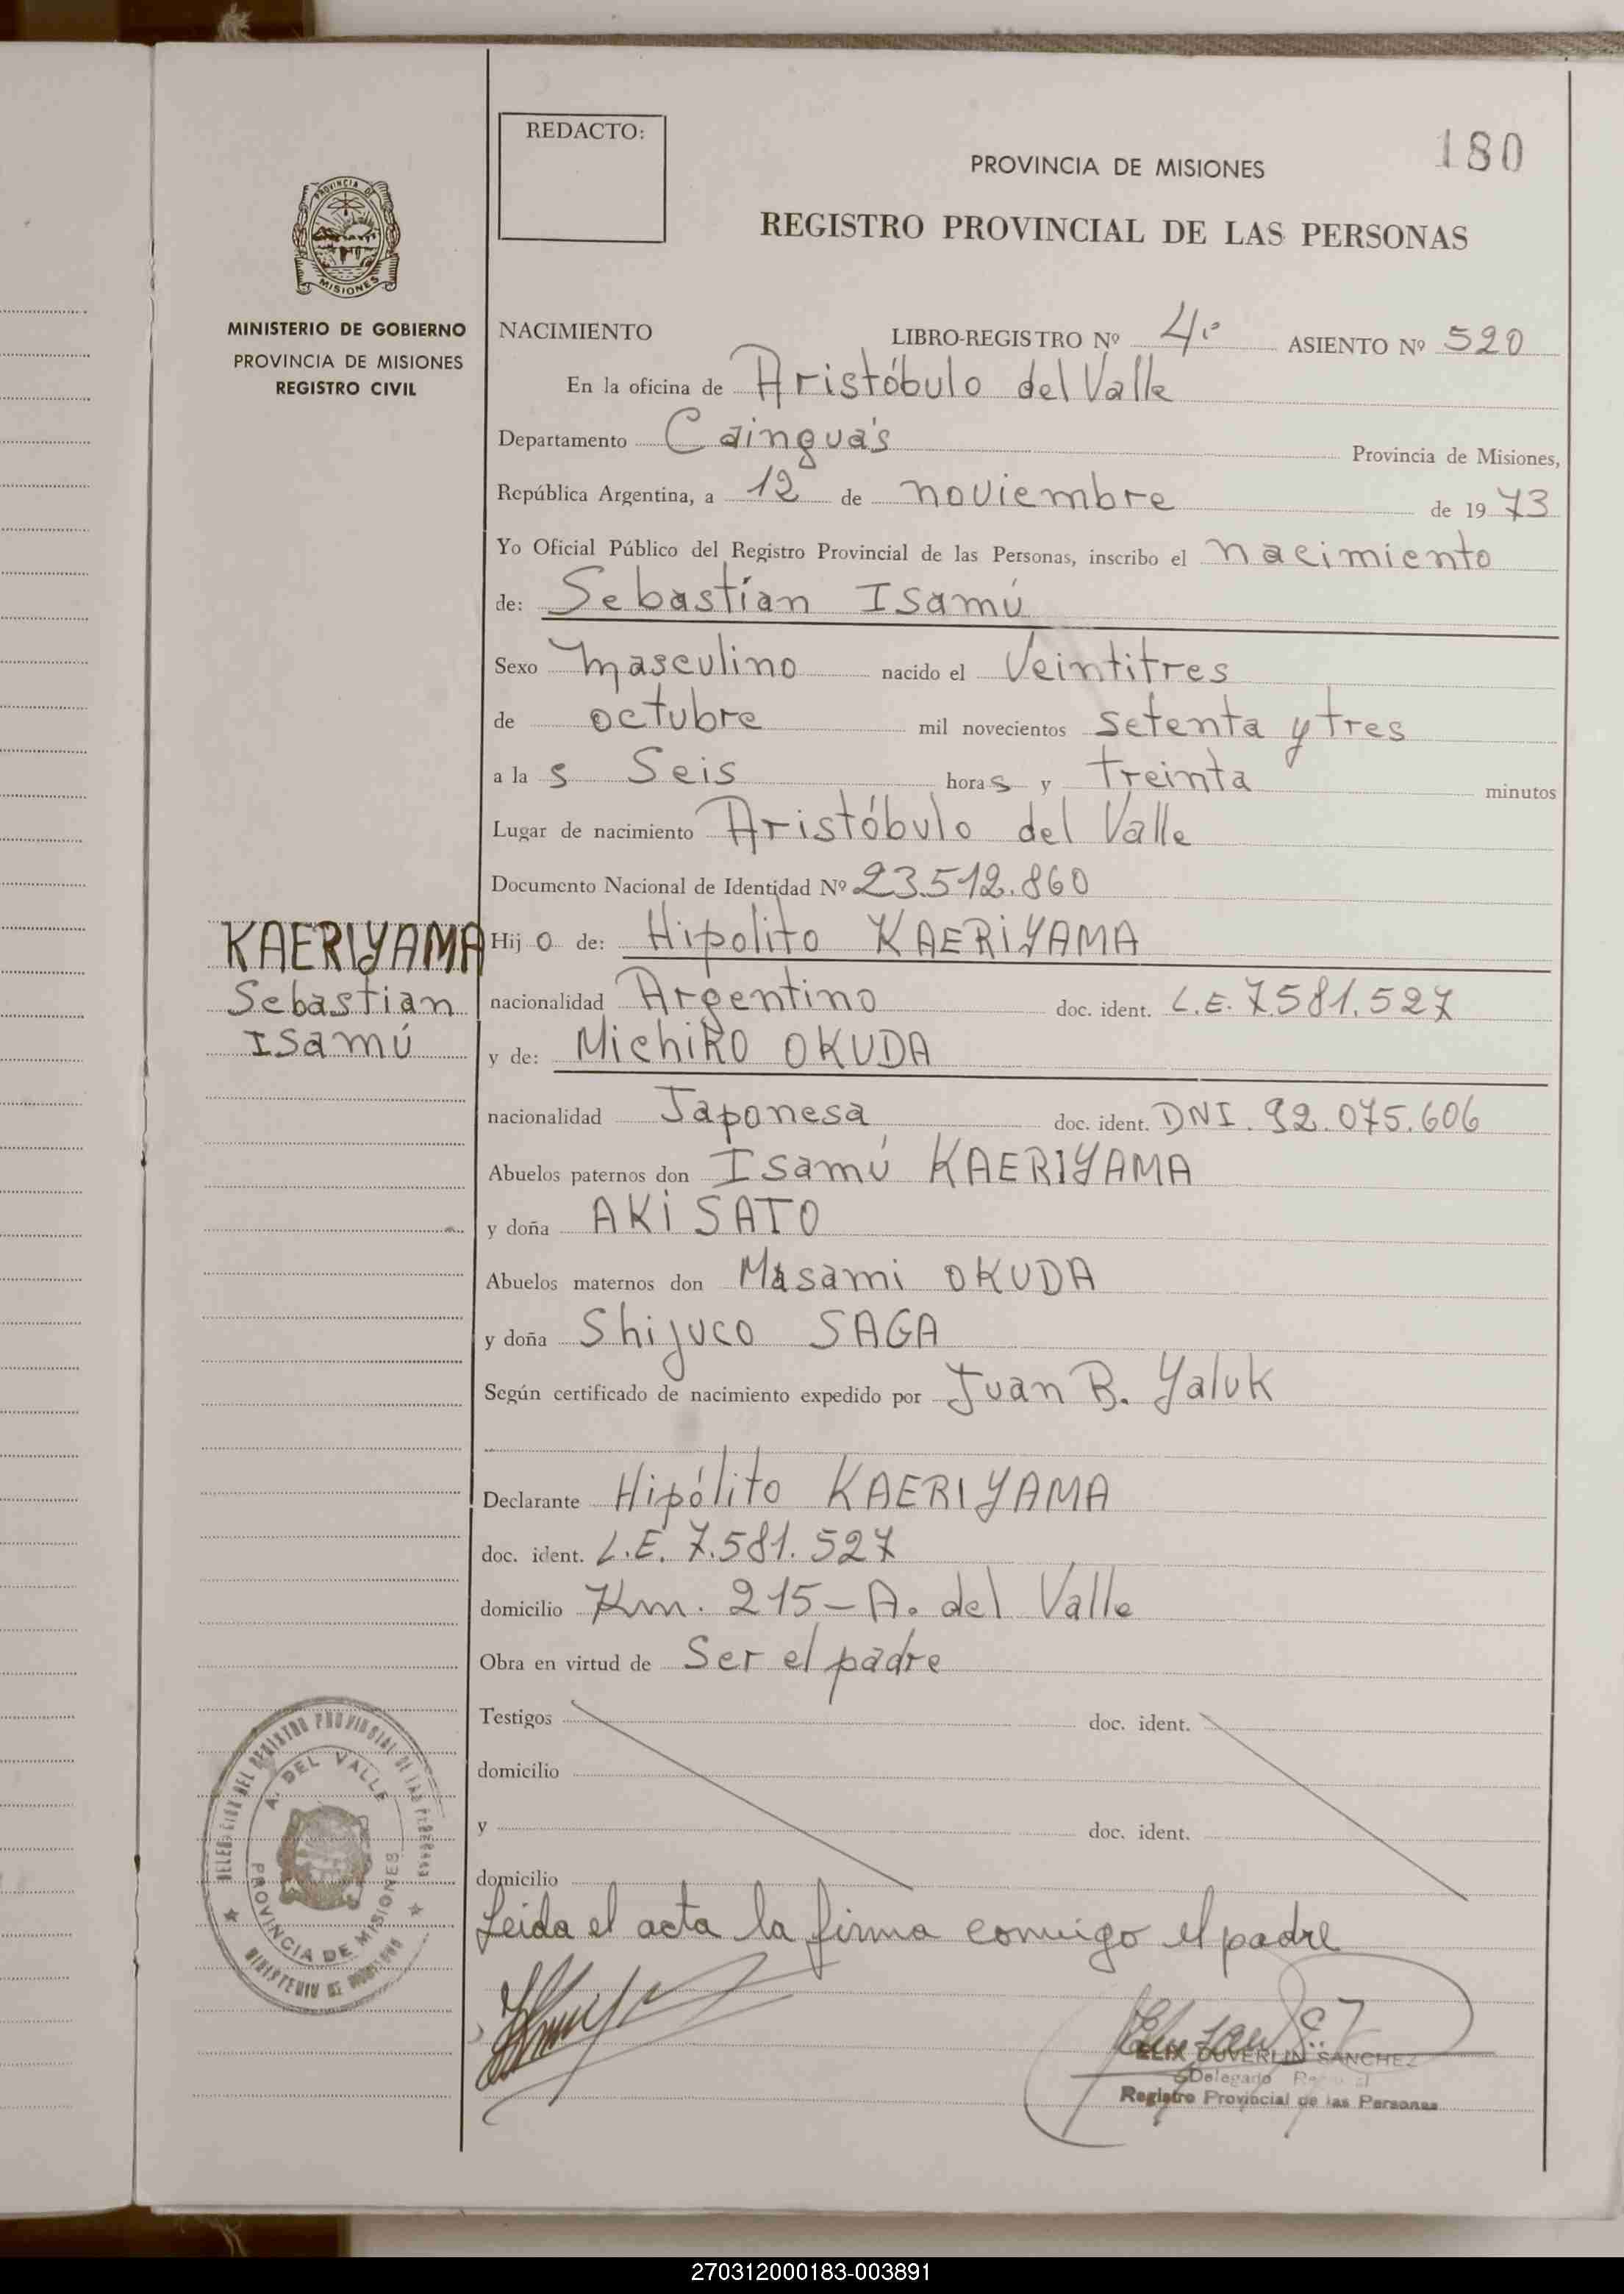 REDACTO:
180
PROVINCIA DE MISIONES
REGISTRO PROVINCIAL DE LAS PERSONAS
PROVINCIA DE
MISIONES
MINISTERIO DE GOBIERNO
PROVINCIA DE MISIONES
REGISTRO CIVIL
NACIMIENTO LIBRO-REGISTRO Nº 4º ASIENTO Nº 520
En la oficina de Aristóbulo del Valle
Departamento Cainguá's Provincia de Misiones,
República Argentina, a 12 de noviembre de 1973
Yo Oficial Público del Registro Provincial de las Personas, inscribo el nacimiento
de: Sebastían Isamú
Sexo masculino nacido el Veintitres
de octubre mil novecientos setenta y tres
a la s Seis horas y treinta minutos
Lugar de nacimiento Aristóbulo del Valle
Documento Nacional de Identidad Nº 23.512.860
Hij o de: Hipolito KAERIYAMA
nacionalidad Argentino doc. ident. L.E. 7.581.527
y de: Michiko OKUDA
nacionalidad Japonesa doc. ident. DNI. 92.075.606
Abuelos paternos don Isamú KAERIYAMA
y doña AKI SATO
Abuelos maternos don Masami OKUDA
y doña Shijuco SAGA
Según certificado de nacimiento expedido por Juan B. Yaluk
Declarante Hipólito KAERIYAMA
doc. ident. L.E. 7.581.527
domicilio Km. 215-A. del Valle
Obra en virtud de Ser el padre
Testigos doc. ident.
domicilio
y doc. ident.
domicilio
Leida el acta la firma conmigo el padre
KAERIYAMA
Sebastian
Isamú
DELEGACIÓN DEL REGISTRO PROVINCIAL DE LAS PERSONAS
A. DEL VALLE
PROVINCIA DE MISIONES
MINISTERIO DE GOBIERNO
FELIX DUVERLIN SANCHEZ
Delegado
Registro Provincial de las Personas
270312000183-003891